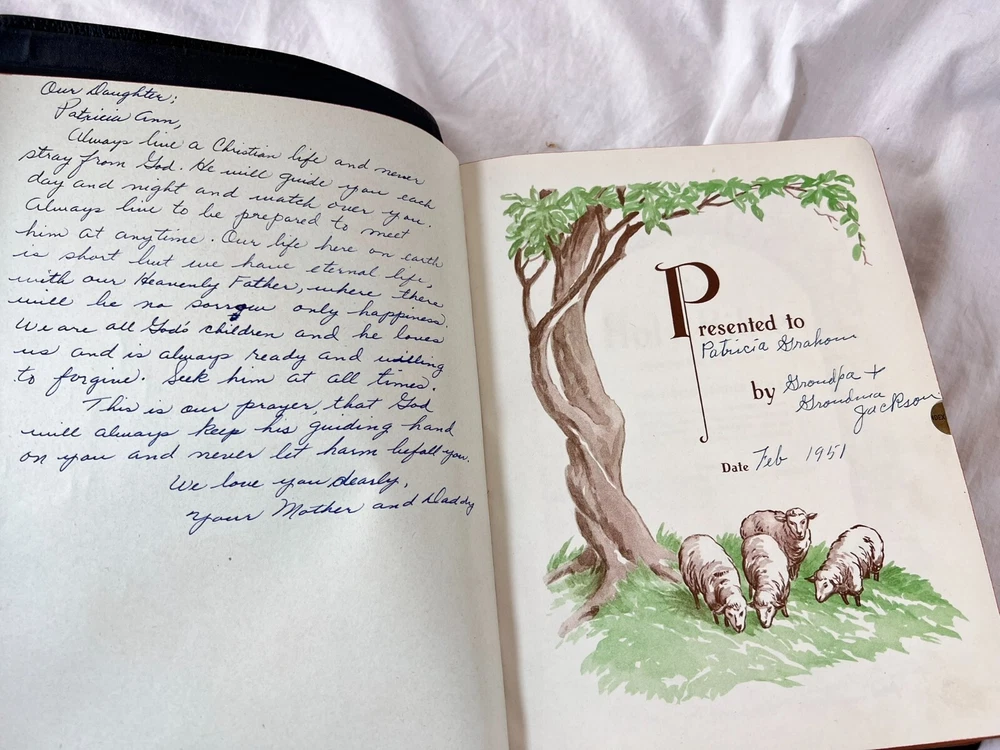 Our Daughter;
Patricia Ann,
Always live a Christian life and never
stray from God. He will guide you each
day and night and watch over you.
Always live to be prepared to meet
him at anytime. Our life here on earth
is short but we have eternal life,
with our Heavenly Father, where there
will be no sorrow only happiness.
We are all God's children and he loves
us and is always ready and willing
to forgive. Seek him at all times.
This is our prayer, that God
will always keep his guiding hand
on you and never let harm befall you.
We love you dearly,
Your Mother and Daddy
Presented to
Patricia Graham
by Grandpa +
Grandma
Jackson
Date Feb 1951